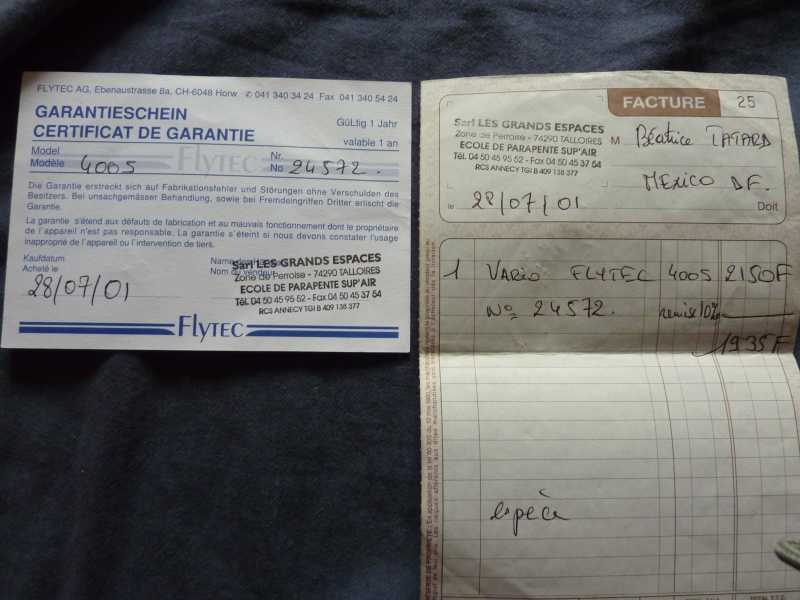 FLYTEC AG, Ebenaustrasse 8a, CH-6048 Horw ✆ 041 340 34 24 Fax 041 340 54 24
GARANTIESCHEIN
CERTIFICAT DE GARANTIE
GüLtig 1 Jahr
valable 1 an
Model
Modèle 4005
Flytec
Nr.
No 24572.
Die Garantie erstreckt sich auf Fabrikationsfehler und Störungen ohne Verschulden des
Besitzers. Bei unsachgemässer Behandlung, sowie bei Fremdeingriffen Dritter erlischt die
Garantie.
La garantie s'étend aux défauts de fabrication et au mauvais fonctionnement dont le propriétaire
de l'appareil n'est pas responsable. La garantie s'éteint si nous devons constater l'usage
inapproprié de l'appareil ou l'intervention de tiers.
Kaufdatum
Acheté le
28/07/01
Nom du vendeur
Sarl LES GRANDS ESPACES
Zone de Perroise - 74290 TALLOIRES
ECOLE DE PARAPENTE SUP'AIR
Tél. 04 50 45 95 52 - Fax 04 50 45 37 54
RCS ANNECY TGI B 409 138 377
Flytec
FACTURE 25
Sarl LES GRANDS ESPACES
Zone de Perroise - 74290 TALLOIRES
ECOLE DE PARAPENTE SUP'AIR
Tél. 04 50 45 95 52 - Fax 04 50 45 37 54
RCS ANNECY TGI B 409 138 377
M Béatrice TATARD
MEXICO DF.
le 28/07/01 Doit
1 VARIO FLYTEC 4005 2150F
No 24572. remise 10%
1935F
espèce